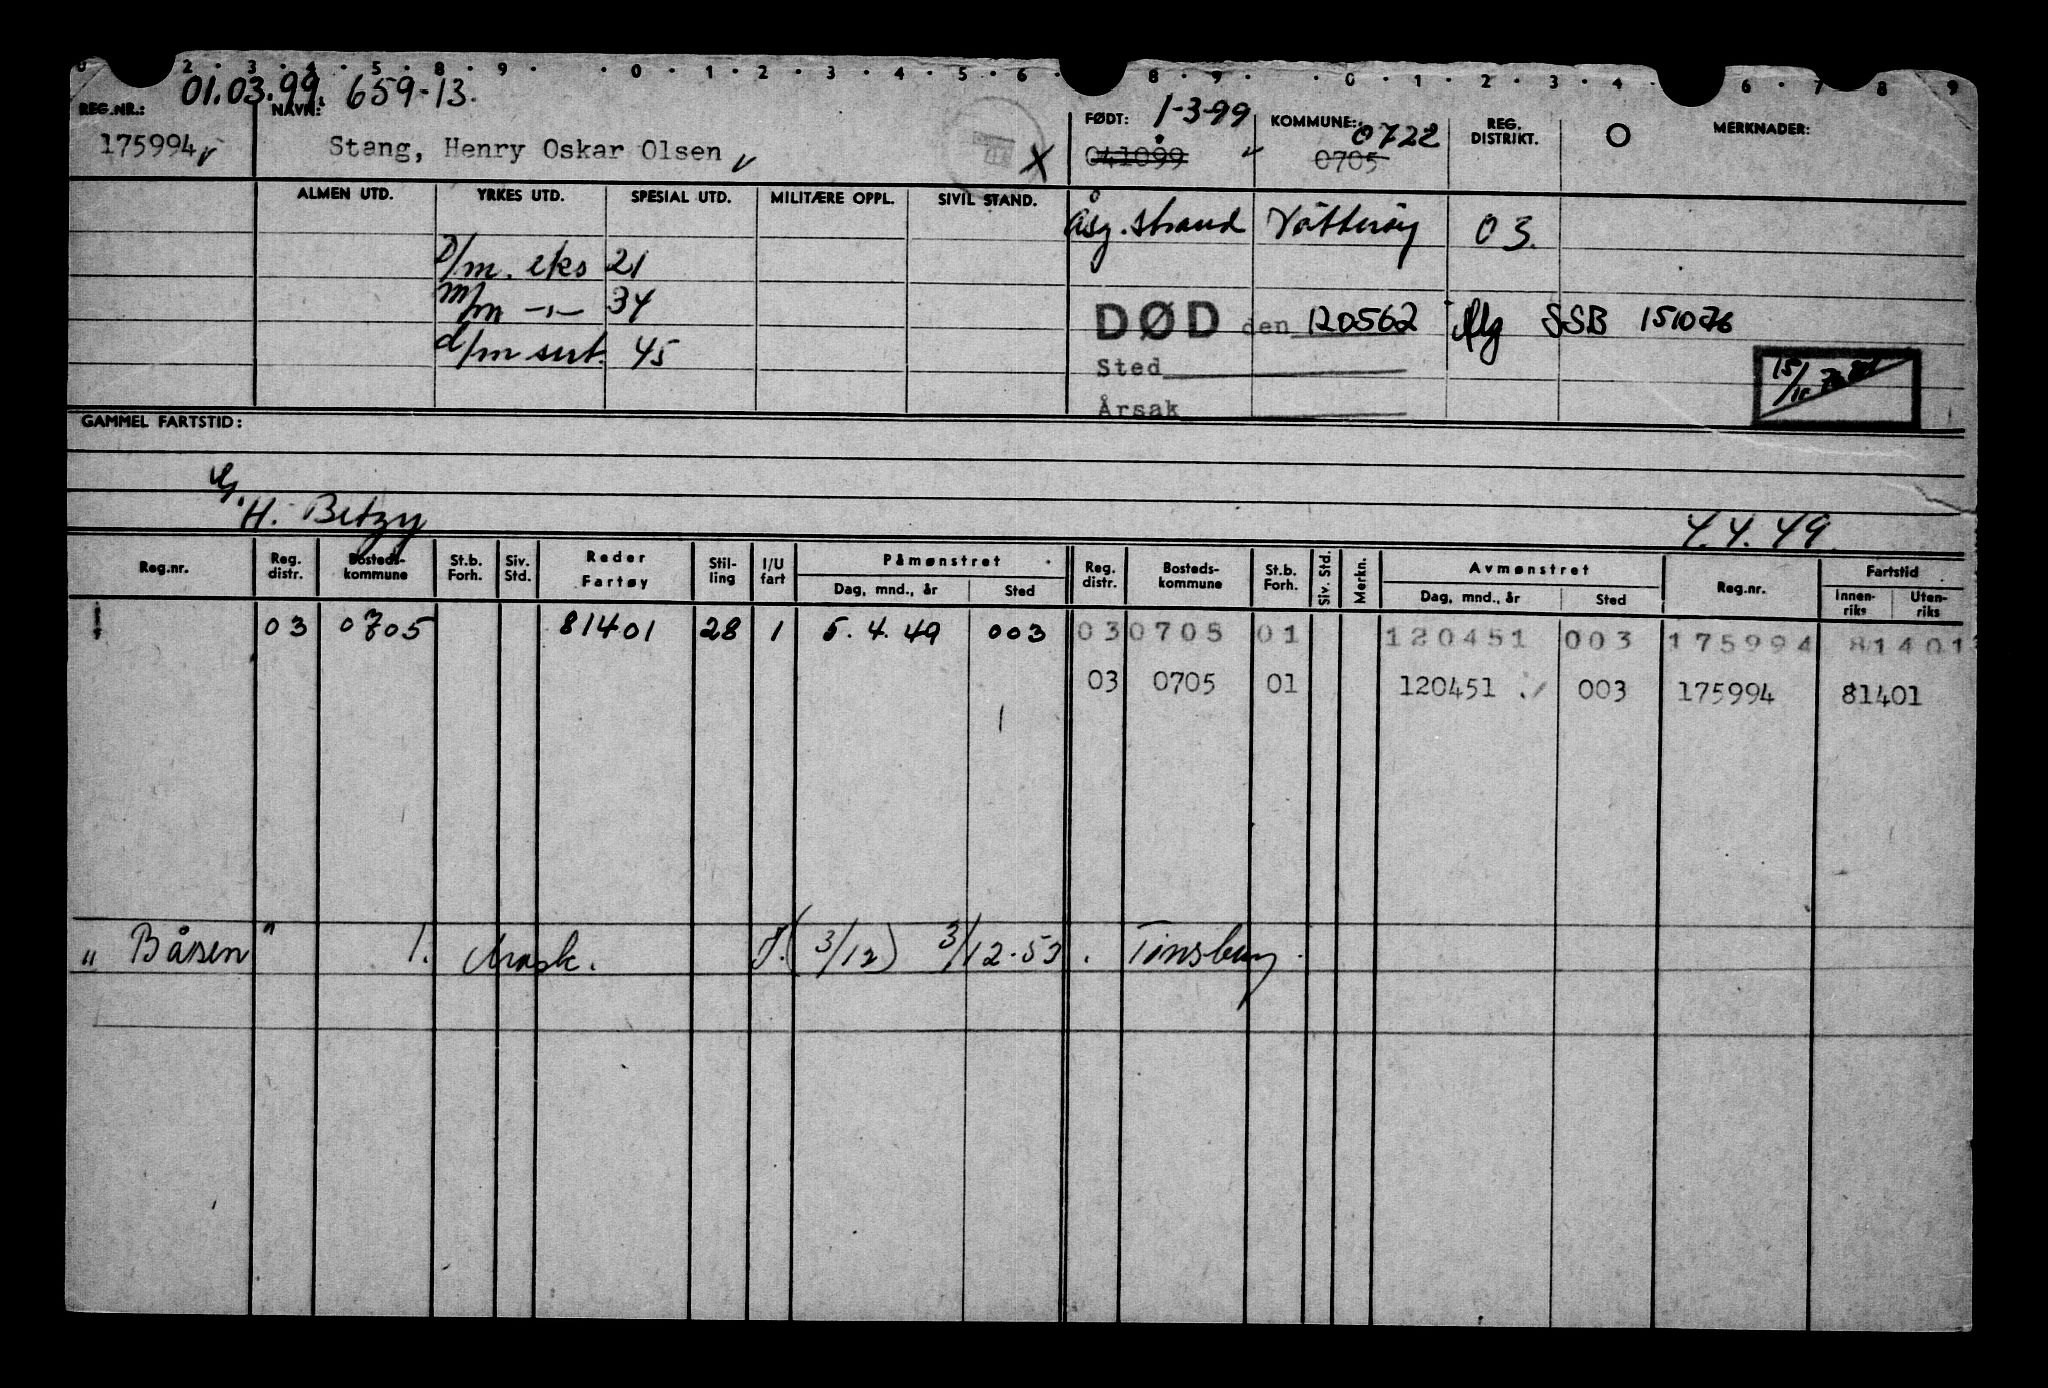 0 2 · 3 · 4 · 5 · 8 · 9 · · 0 · 1 · 2 · 3 · 4 · 5 · 6 · 8 · 9 · · 0 · 1 · 2 · 3 · 4 · 6 · 7 8 9
01.03.99. 659-13.
REG.NR.: NAVN: FØDT: 1-3-99 KOMMUNE: 0722 REG. DISTRIKT. O MERKNADER:
175994 Stang, Henry Oskar Olsen X 041099 0705
ALMEN UTD. YRKES UTD. SPESIAL UTD. MILITÆRE OPPL. SIVIL STAND.
Åsg.strand Nøtterøy 03.
D/m. eks 21
m/m -"- 34
DØD den 120562 SSB 151076
d/m sert. 45
Sted
15/10
Årsak
GAMMEL FARTSTID:
H. Betzy 4.4.49.
Reg.nr. Reg. distr. Bosteds- kommune St.b. Forh. Siv. Std. Reder Fartøy Stil- ling I/U fart Påmønstret Dag, mnd., år Sted Reg. distr. Bosteds- kommune St.b. Forh. Siv. Std. Merkn. Avmønstret Dag, mnd., år Sted Reg.nr. Fartstid Innen- riks Uten- riks
03 0705 81401 28 1 5.4.49 003 03 0705 01 120451 003 175994 81401
03 0705 01 120451 003 175994 81401
„ Båsen " 1. mask. (3/12) 3/12.53. Tønsberg.